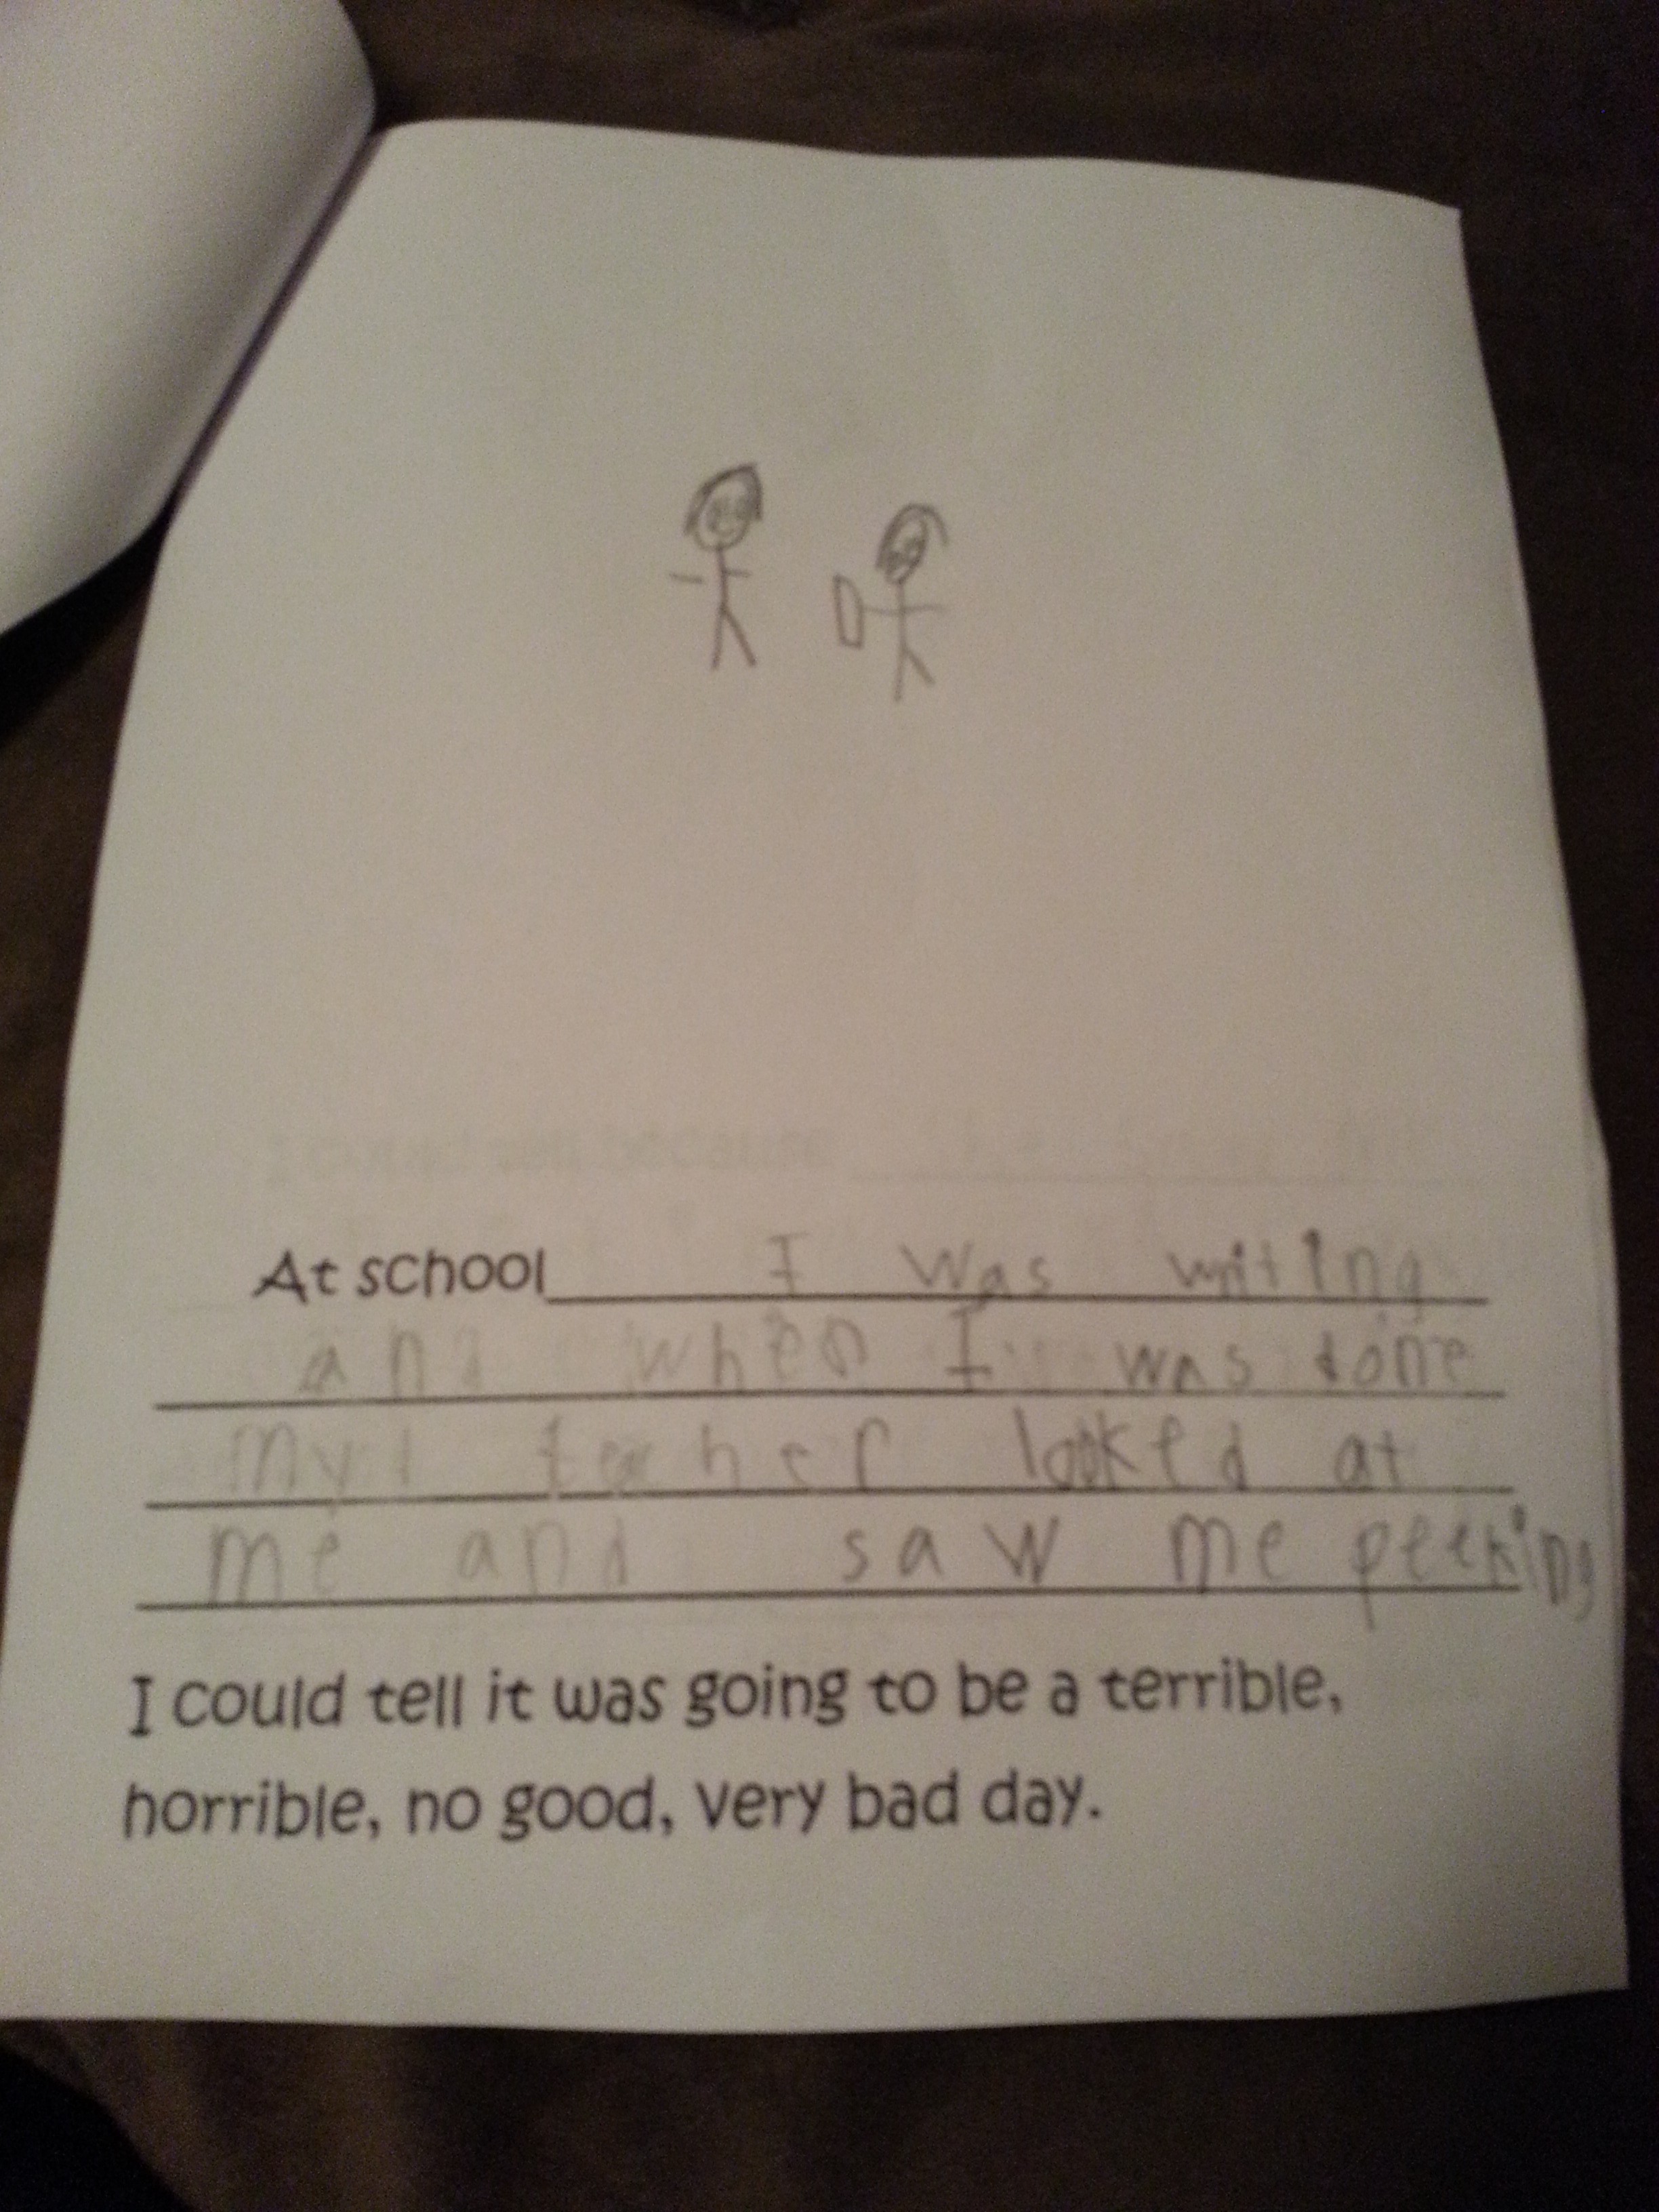 At school I was writing
and when I was done
my teacher looked at
me and saw me peeking
I could tell it was going to be a terrible,
horrible, no good, very bad day.